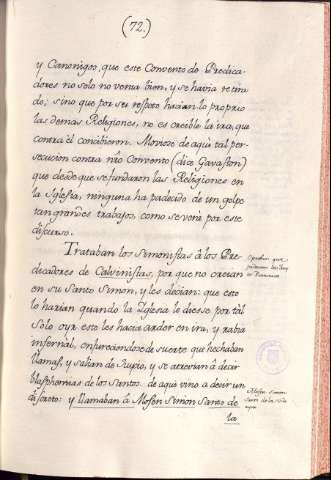 (72.)
y Canonigos, que este Convento de Predica-
dores no solo no venia bien, y se havia retira
do; sino que por ser respeto hacian lo proprio
las demas Religiones, no es creible la ira, que
contra él concibieron. Moviose de aqui tal per-
secucion contra nro Convento (dice Gavaston)
que desde que se fundaron las Religiones en
la Iglesia, ninguna ha padecido de un golpe
tan grandes trabajos, como se verá por este
discurso.
Trataban los Simonistas á los Pre-
dicadores de Calvinistas, por que no creian
en su Santo Simon, y les decian: que esto
lo harian quando la Iglesia le diese por tál
Solo oyr esto les hacia arder en ira, y rabia
infernal, enfureciendose de suerte que hechaban
llamas, y salian de Juycio, y se atrevian á decir
blasphemias de los Santos. de aqui vino a decir un
discreto: y llamaban á Mosen Simon Santo de
la
que
padecieron los
Mosen Simon
Santo de la